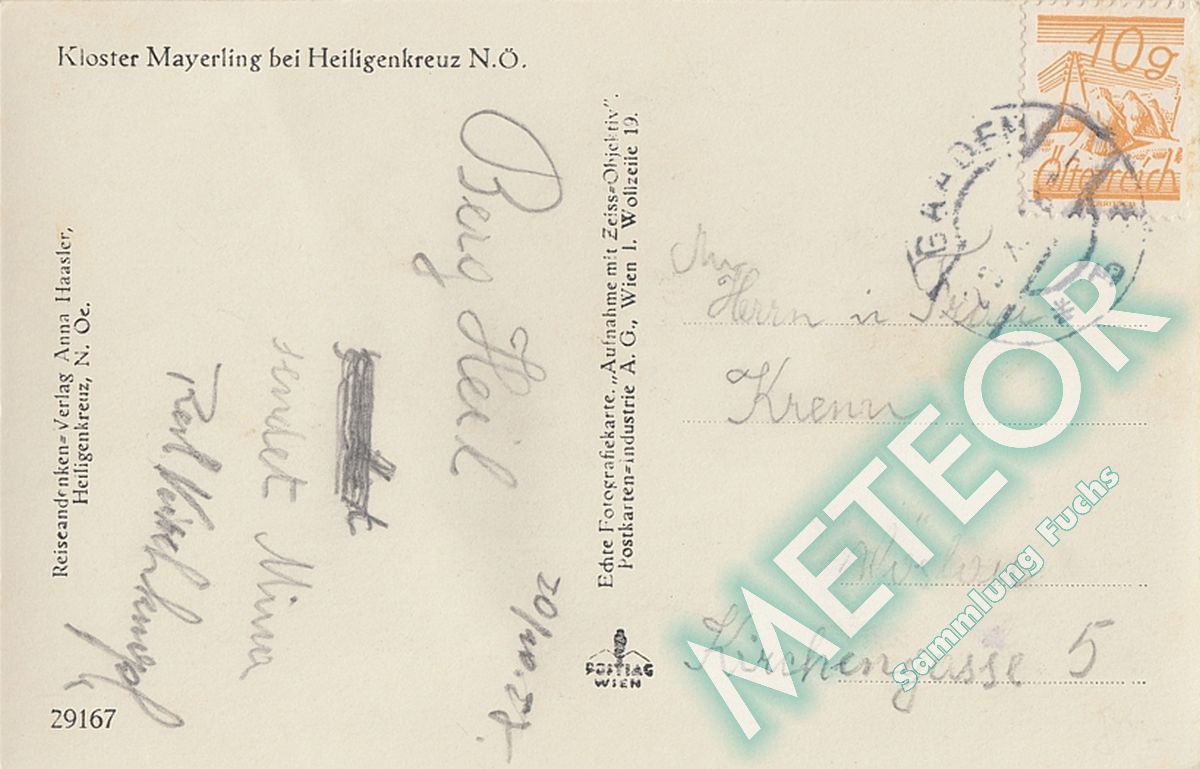 Kloster Mayerling bei Heiligenkreuz N.Ö.
Reiseandenken-Verlag Anna Haasler,
Heiligenkreuz, N. Oe.
29167
Berg Heil
sendet Minna
20/10.29.
Echte Fotografiekarte. „Aufnahme mit Zeiss-Objektiv".
Postkarten-Industrie A. G., Wien I. Wollzeile 19.
WIEN
10g
Österreich
GAADEN
An
Herrn u Frau
Krenn
Kirchengasse 5
METEOR
Sammlung Fuchs